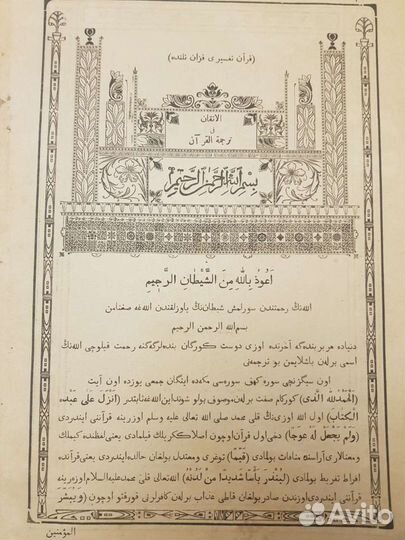 (قرآن تفسیری قزان تلنده)
الاتقان
فی
ترجمة القرآن
بسم الله الرحمن الرحیم
اَعُوذُ بِاللّٰهِ مِنَ الشَّیْطَانِ الرَّجِیْمِ
اللهنڭ رحمتندن سورلمش شیطاننڭ یاوزلقندن اللهغه صغنامن
بسم الله الرحمن الرحیم
دنیاده هر بر بندهگه آخرتده اوزی دوست کورگان بندهلرگهگنه رحمت قیلوچی اللهنڭ
اسمی برلهن باشلایمن بو ترجمهنی
اون سیگزنچی سوره کهف سورهسی مکهده اینگان جمعی یوزده اون آیت
(اَلْحَمْدُ لِلّٰهِ الَّذِی) کورکام صفت برلهن موصوف بولو شوندای اللهغه ثابتدر (اَنْزَلَ عَلٰی عَبْدِهِ
الْکِتَابَ) اول الله اوزینڭ قلی محمد صلی الله تعالی علیه وسلم اوزرینه قرآننی ایندردی
(وَلَمْ یَجْعَلْ لَهُ عِوَجًا) دخی اول قرآن اوچون اصلا کڭرلک قیلمادی یعنی لفظنده کیمڭلک
ومعنالاری آراسنده منافات بولمادی (قَیِّمًا) توغری و معتدل بولغان حالده ایندردی یعنی قرآننده
افراط تفریط بولمادی (لِیُنْذِرَ بَأْسًا شَدِیدًا مِنْ لَدُنْهُ) الله تعالی قلی محمد علیه السلام اوزرینه
قرآننی ایندردی اوزندن صادر بولغان قاطی عذاب برلهن کافرلرنی قورقتو اوچون (وَیُبَشِّرَ
المؤمنین
Avito